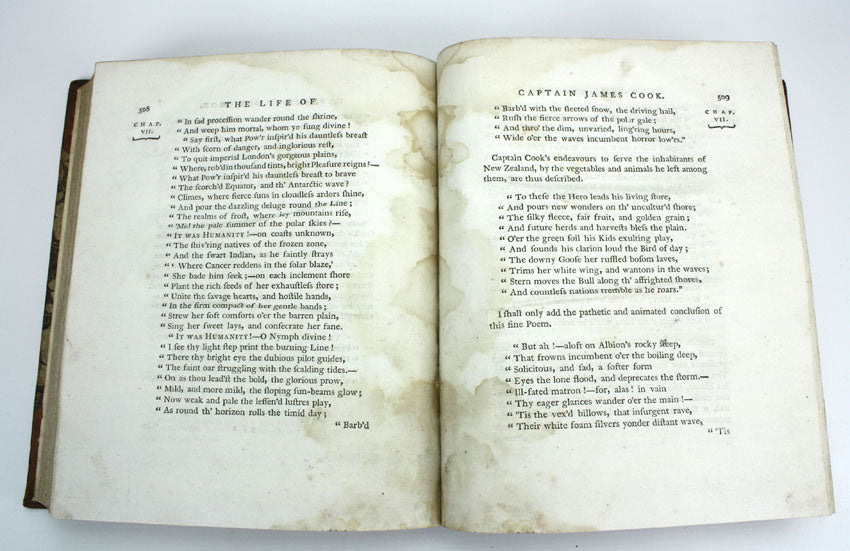 508
THE LIFE OF
CHAP.
VII.
“ In ſad proceſſion wander round the ſhrine,
“ And weep him mortal, whom ye ſung divine !
“ Say firſt, what Pow'r inſpir'd his dauntleſs breaſt
“ With ſcorn of danger, and inglorious reſt,
“ To quit imperial London's gorgeous plains,
“ Where, rob'd in thouſand tints, bright Pleaſure reigns?—
“ What Pow'r inſpir'd his dauntleſs breaſt to brave
“ The ſcorch'd Equator, and th' Antarctic wave ?
“ Climes, where fierce ſuns in cloudleſs ardors ſhine,
“ And pour the dazzling deluge round the Line ;
“ The realms of froſt, where icy mountains riſe,
“ 'Mid the pale ſummer of the polar ſkies ?—
“ IT WAS HUMANITY !—on coaſts unknown,
“ The ſhiv'ring natives of the frozen zone,
“ And the ſwart Indian, as he faintly ſtrays
“ ‘ Where Cancer reddens in the ſolar blaze,’
“ She bade him ſeek ;—on each inclement ſhore
“ Plant the rich ſeeds of her exhauſtleſs ſtore ;
“ Unite the ſavage hearts, and hoſtile hands,
“ In the firm compact of her gentle bands ;
“ Strew her ſoft comforts o'er the barren plain,
“ Sing her ſweet lays, and conſecrate her fane.
“ IT WAS HUMANITY !—O Nymph divine !
“ I ſee thy light ſtep print the burning Line !
“ There thy bright eye the dubious pilot guides,
“ The faint oar ſtruggling with the ſcalding tides.—
“ On as thou lead'ſt the bold, the glorious prow,
“ Mild, and more mild, the ſloping ſun-beams glow ;
“ Now weak and pale the leſſen'd luſtres play,
“ As round th' horizon rolls the timid day ;
“ Barb'd
CAPTAIN JAMES COOK.
509
CHAP.
VII.
“ Barb'd with the ſleeted ſnow, the driving hail,
“ Ruſh the fierce arrows of the polar gale ;
“ And thro' the dim, unvaried, ling'ring hours,
“ Wide o'er the waves incumbent horror low'rs.”
Captain Cook's endeavours to ſerve the inhabitants of
New Zealand, by the vegetables and animals he left among
them, are thus deſcribed.
“ To theſe the Hero leads his living ſtore,
“ And pours new wonders on th' uncultur'd ſhore ;
“ The ſilky fleece, fair fruit, and golden grain ;
“ And future herds and harveſts bleſs the plain.
“ O'er the green ſoil his Kids exulting play,
“ And ſounds his clarion loud the Bird of day ;
“ The downy Gooſe her ruffled boſom laves,
“ Trims her white wing, and wantons in the waves ;
“ Stern moves the Bull along th' affrighted ſhores,
“ And countleſs nations tremble as he roars.”
I ſhall only add the pathetic and animated concluſion of
this fine Poem.
“ But ah !—aloft on Albion's rocky ſteep,
“ That frowns incumbent o'er the boiling deep,
“ Solicitous, and ſad, a ſofter form
“ Eyes the lone flood, and deprecates the ſtorm.—
“ Ill-fated matron !—for, alas ! in vain
“ Thy eager glances wander o'er the main !—
“ 'Tis the vex'd billows, that inſurgent rave,
“ Their white foam ſilvers yonder diſtant wave,
“ 'Tis